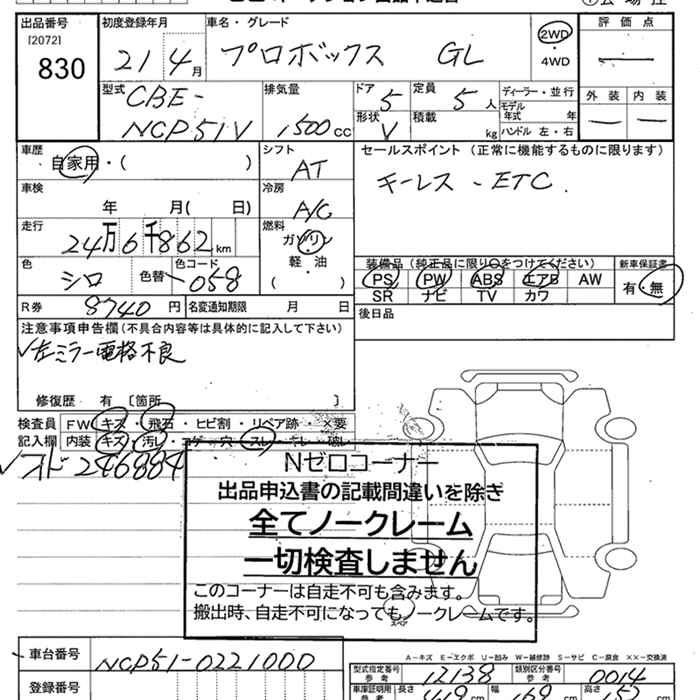 出品番号 初度登録年月 車名・グレード 評価点
[2072]
830 21 4月 プロボックス GL 2WD・4WD
外装 内装
型式 CBE-NCP51V 排気量 1,500cc ドア 5 定員 5人 ディーラー・並行
形状 V 積載 kg モデル年式 年
ハンドル 左・右
車歴 自家用・( ) シフト AT セールスポイント (正常に機能するものに限ります)
キーレス - ETC.
車検 年 月( 日) 冷房 A/C
走行 24万6千862km 燃料 ガソリン 軽・油 ( )
色 シロ 色替 色コード 058
装備品 (純正品に限り○をつけてください) 新車保証書
PS PW ABS エアB AW 有・無
SR ナビ TV カワ
R券 8740円 名変通知期限 月 日 後日品
注意事項申告欄 (不具合内容等は具体的に記入して下さい)
✓左ミラー電格不良
修復歴 有 [箇所 ]
検査員 FW キズ・飛石・ヒビ割・リペア跡・×要
記入欄 内装 キズ・汚レ・コゲ・穴・スレ
✓オド246884
Nゼロコーナー
出品申込書の記載間違いを除き
全てノークレーム
一切検査しません
このコーナーは自走不可も含みます。
搬出時、自走不可になってもノークレームです。
スペア
A-キズ E-エクボ U-凹み W-補修跡 S-サビ C-腐食 ××-交換済
車台番号 NCP51-0221000
型式指定番号 参考 12138 類別区分番号 参考 0014
登録番号
車庫証明用 参考 長さ 419cm 幅 169cm 高さ cm